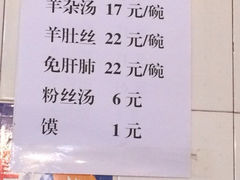 羊杂汤 17 元/碗
羊肚丝 22 元/碗
免肝肺 22 元/碗
粉丝汤 6 元
馍 1 元